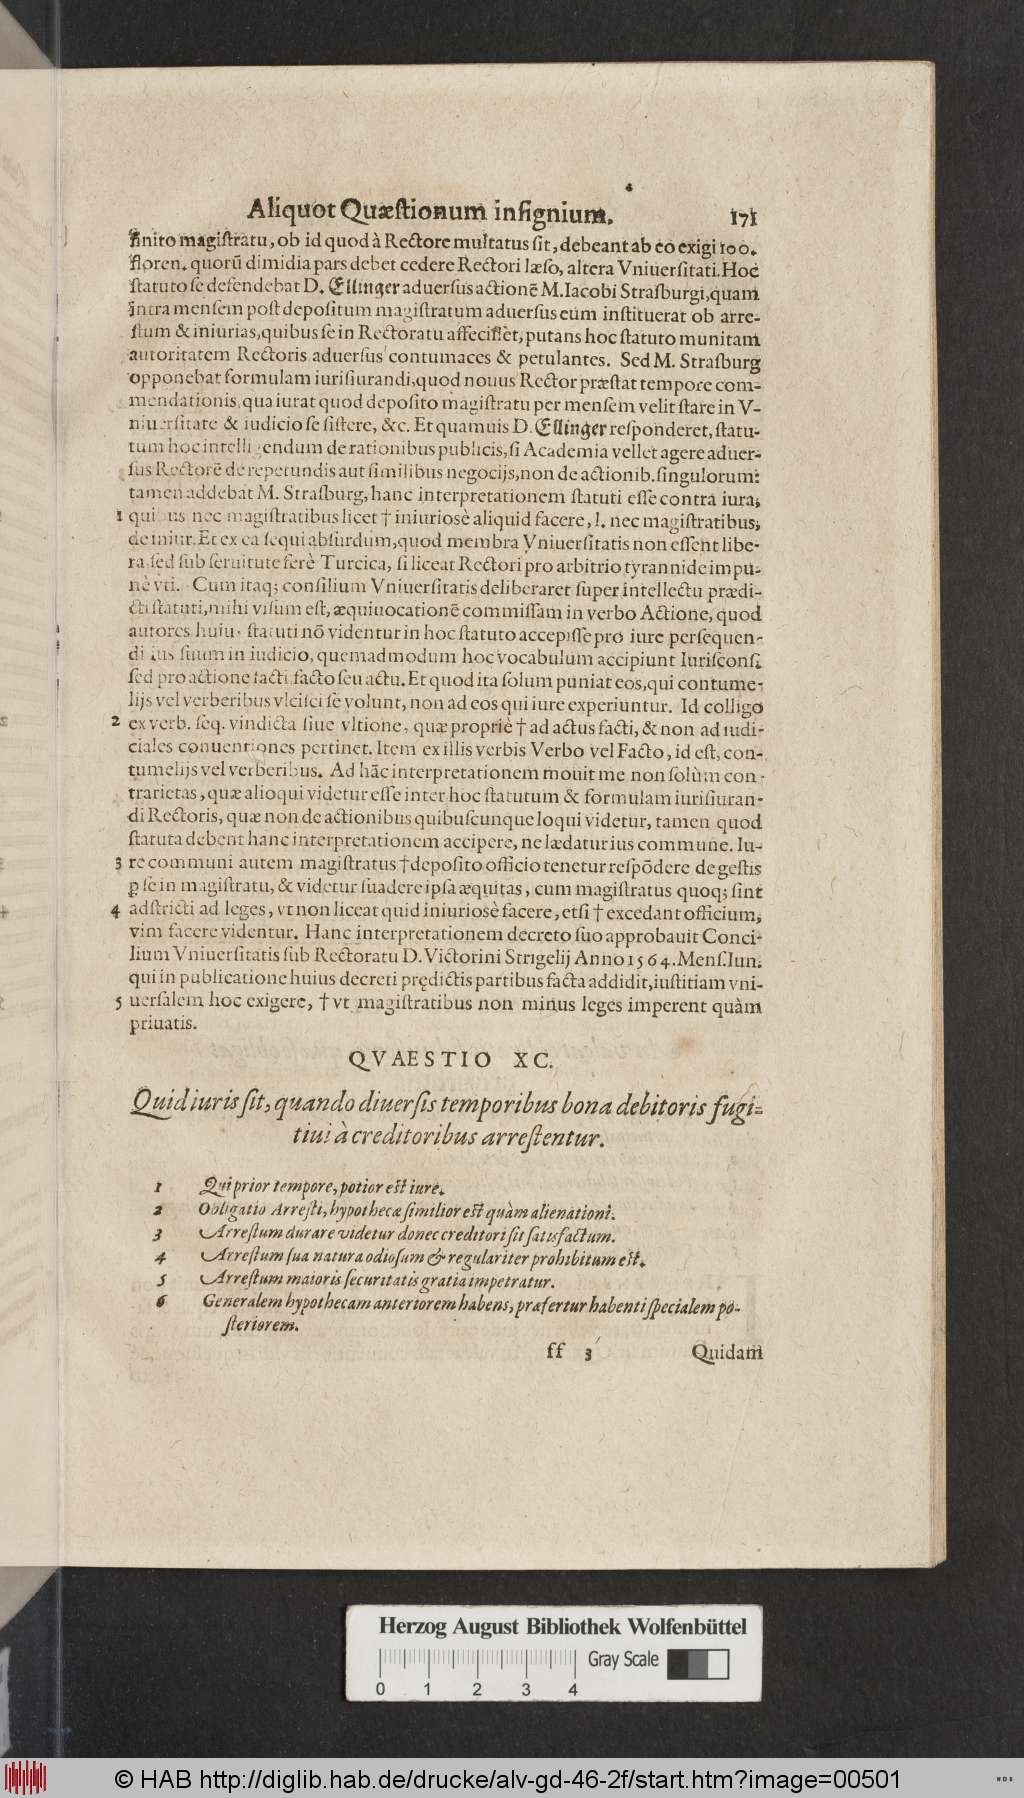 Aliquot Quæſtionum inſignium. 171
finito magiſtratu, ob id quod à Rectore multatus ſit, debeant ab eo exigi 100.
floren. quorũ dimidia pars debet cedere Rectori læſo, altera Vniuerſitati. Hoc
ſtatuto ſe defendebat D. Ellinger aduerſus actionẽ M. Iacobi Straſburgi, quam
intra menſem poſt depoſitum magiſtratum aduerſus eum inſtituerat ob arre-
ſtum & iniurias, quibus ſe in Rectoratu affeciſſet, putans hoc ſtatuto munitam
autoritatem Rectoris aduerſus contumaces & petulantes. Sed M. Straſburg
opponebat formulam iuriſiurandi, quod nouus Rector præſtat tempore com-
mendationis, qua iurat quod depoſito magiſtratu per menſem velit ſtare in V-
niuerſitate & iudicio ſe ſiſtere, &c. Et quamuis D. Ellinger reſponderet, ſtatu-
tum hoc intelligendum de rationibus publicis, ſi Academia vellet agere aduer-
ſus Rectorẽ de repetundis aut ſimilibus negocijs, non de actionib. ſingulorum:
tamen addebat M. Straſburg, hanc interpretationem ſtatuti eſſe contra iura,
1 quibus nec magiſtratibus licet † iniurioſè aliquid facere, l. nec magiſtratibus,
de iniur. Et ex ea ſequi abſurdum, quod membra Vniuerſitatis non eſſent libe-
ra ſed ſub ſeruitute ferè Turcica, ſi liceat Rectori pro arbitrio tyrannide impu-
nè vti. Cum itaq; conſilium Vniuerſitatis deliberaret ſuper intellectu prædi-
cti ſtatuti, mihi viſum eſt, æquiuocationẽ commiſſam in verbo Actione, quod
autores huius ſtatuti nõ videntur in hoc ſtatuto accepiſſe pro iure perſequen-
di ius ſuum in iudicio, quemadmodum hoc vocabulum accipiunt Iuriſconſ.
ſed pro actione facti, facto ſeu actu. Et quod ita ſolum puniat eos, qui contume-
lijs vel verberibus vlciſci ſe volunt, non ad eos qui iure experiuntur. Id colligo
2 ex verb. ſeq. vindicta ſiue vltione, quæ propriè † ad actus facti, & non ad iudi-
ciales conuentiones pertinet. Item ex illis verbis Verbo vel Facto, id eſt, con-
tumelijs vel verberibus. Ad hãc interpretationem mouit me non ſolùm con-
trarietas, quæ alioqui videtur eſſe inter hoc ſtatutum & formulam iuriſiuran-
di Rectoris, quæ non de actionibus quibuſcunque loqui videtur, tamen quod
ſtatuta debent hanc interpretationem accipere, ne lædatur ius commune. Iu-
3 re communi autem magiſtratus † depoſito officio tenetur reſpõdere de geſtis
ꝑ ſe in magiſtratu, & videtur ſuadere ipſa æquitas, cum magiſtratus quoq; ſint
4 adſtricti ad leges, vt non liceat quid iniurioſè facere, etſi † excedant officium,
vim facere videntur. Hanc interpretationem decreto ſuo approbauit Conci-
lium Vniuerſitatis ſub Rectoratu D. Victorini Strigelij Anno 1564. Menſ. Iun.
qui in publicatione huius decreti prędictis partibus facta addidit, iuſtitiam vni-
5 uerſalem hoc exigere, † vt magiſtratibus non minus leges imperent quàm
priuatis.
QVAESTIO XC.
Quid iuris ſit, quando diuerſis temporibus bona debitoris fugi-
tiui à creditoribus arreſtentur.
1 Qui prior tempore, potior eſt iure.
2 Obligatio Arreſti, hypothecæ ſimilior eſt quàm alienationi.
3 Arreſtum durare videtur donec creditori ſit ſatisfactum.
4 Arreſtum ſua natura odioſum & regulariter prohibitum eſt.
5 Arreſtum maioris ſecuritatis gratia impetratur.
6 Generalem hypothecam anteriorem habens, præfertur habenti ſpecialem po-
ſteriorem.
ff 3 Quidam
Herzog August Bibliothek Wolfenbüttel
Gray Scale
0 1 2 3 4
© HAB http://diglib.hab.de/drucke/alv-gd-46-2f/start.htm?image=00501